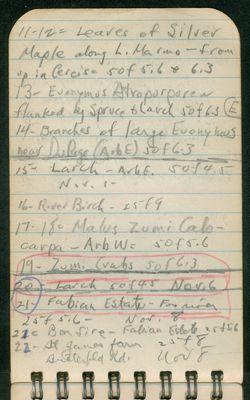 11-12= Leaves of Silver
Maple along L. Marmo - from
up in Cercis= 50f5.6 & 6.3
13- Euonymus Atropurpurea
flanked by Spruce & Larch 50f6.3 (E
14- Branches of large Euonymus
near DuPage (Arb E) 50f6.3
15- Larch - Arb E. 50f4.5
Nov. 1-
16- River Birch - 25f9
17-18= Malus Zumi Calo-
carpa - Arb W= 50f5.6
19- Zumi Crabs 50f6.3
20- Larch 50f4.5 Nov. 6
21- Fabian Estate-
25f5.6- Nov. 8
21= Bonfire - Fabian Estate 25f5.6
22- At games farm 25f8
Rd. Nov 8